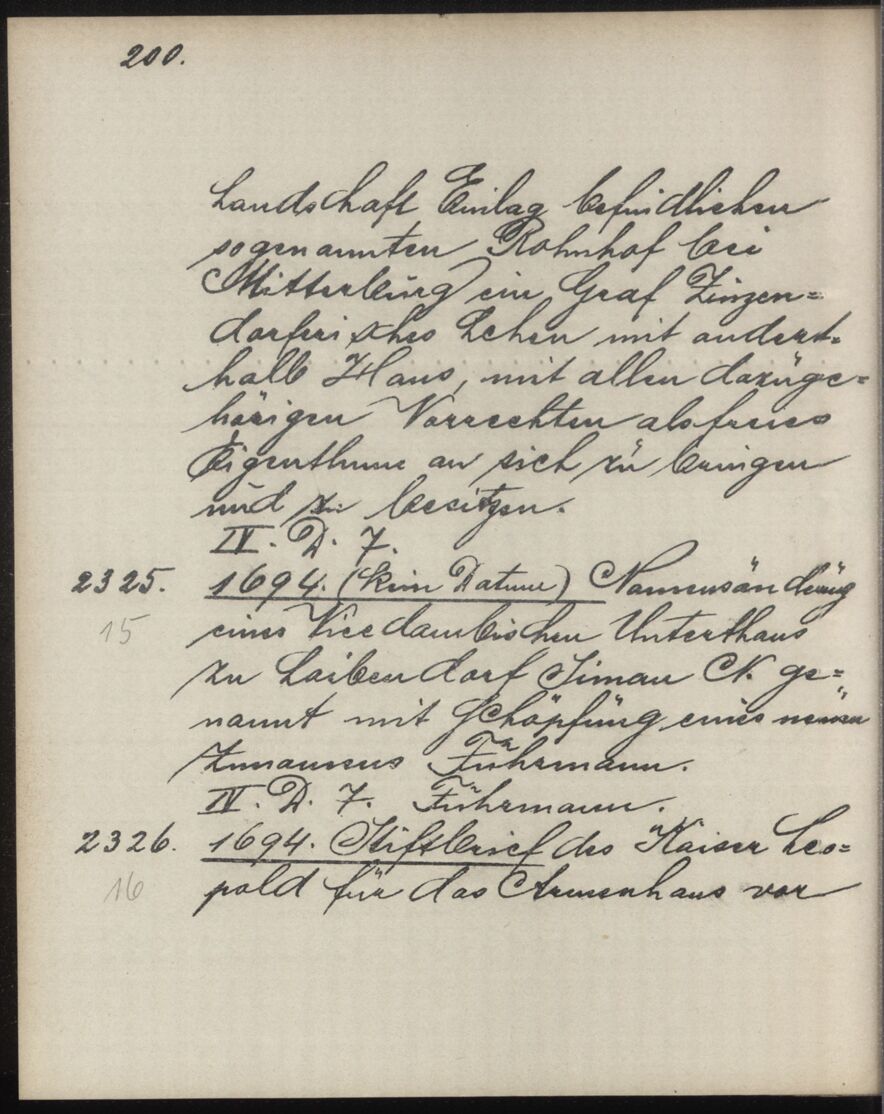 200.
Landschaft Einlag befindlichen
sogenannten Rohnhof bei
Mitterburg ein Graf Zinzen=
dorferisches Lehen mit andert=
halb Haus, mit allen dazuge=
hörigen Vorrechten als freies
Eigenthum an sich zu bringen
und zu besitzen.
IV. D. 7.
2325. 1694. (kein Datum) Namensändrung
15 eines Vicedombischen Unterthans
zu Loibendorf Simon N. ge=
nannt mit Schöpfung eines neuen
Zunamens Führmann.
IV. D. 7. Führmann.
2326. 1694. Stiftbrief des Kaiser Leo=
16 pold für das Armenhaus vor